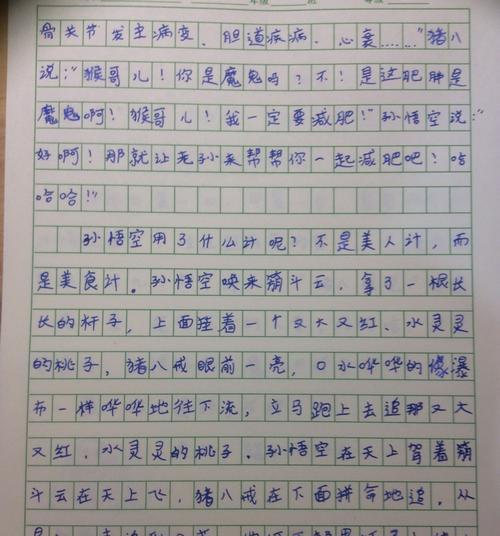 骨关节发生病变、胆道疾病、心衰……"猪八
说:"猴哥儿!你是魔鬼吗?不!是这肥胖是
魔鬼啊!猴哥儿!我一定要减肥!"孙悟空说:"
好啊!那就让老孙来帮帮你一起减肥吧!哈
哈哈!"
孙悟空用了什么计呢?不是美人计,而
是美食计。孙悟空唤来筋斗云,拿了一根长
长的杆子,上面挂着一个又大又红、水灵灵
的桃子,猪八戒眼前一亮,口水哗哗的像瀑
布一样哗哗地往下流,立马跑上去追那又大
又红、水灵灵的桃子。孙悟空在天上驾着筋
斗云在天上飞,猪八戒在下面拼命地追,从